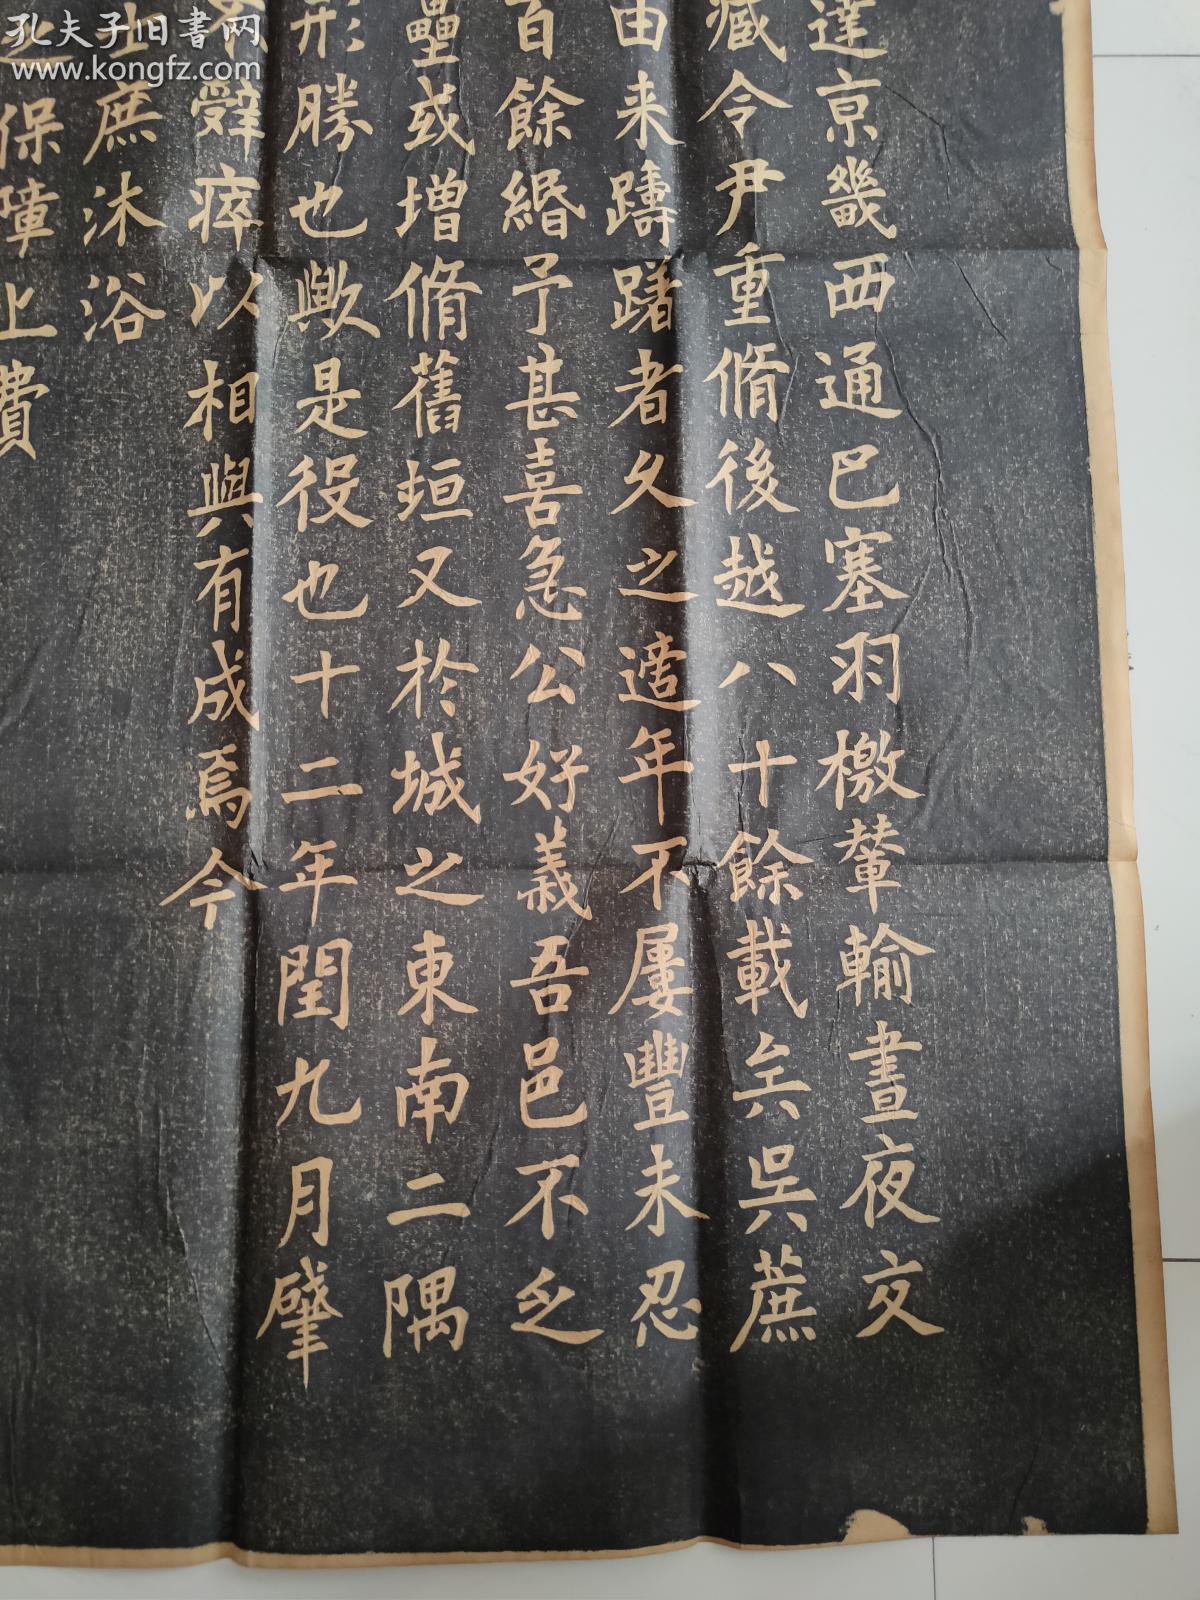 孔夫子旧书网
www.kongfz.com
達京畿西通巴塞羽檄輦輸晝夜交
藏令尹重脩後越八十餘載矣吳蔗
由来躊躇者久之適年不屢豐未忍
百餘緡予甚喜急公好義吾邑不乏
壘或增脩舊垣又於城之東南二隅
形勝也歟是役也十二年閏九月肇
辭瘁以相與有成焉今
士庶沐浴
之保障上費